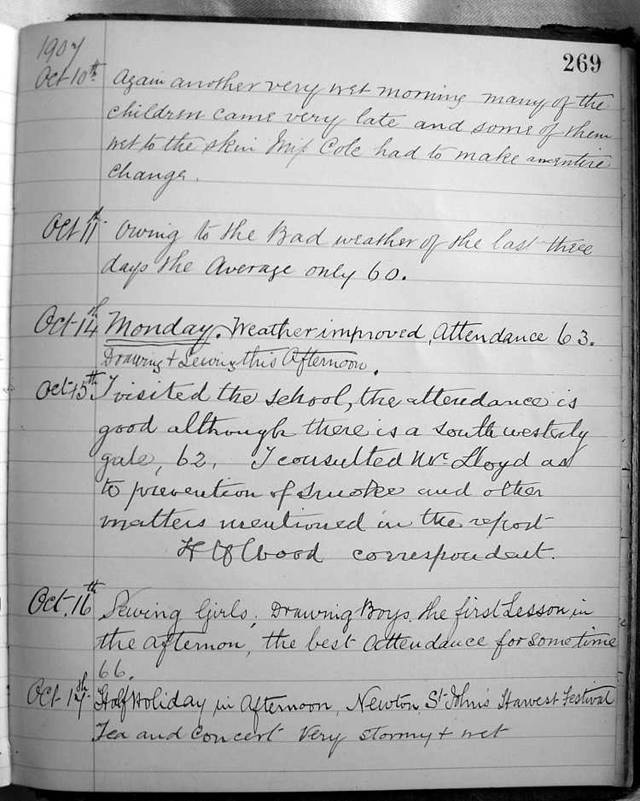 1907
269
Oct 10th Again another very wet morning many of the
children came very late and some of them
wet to the skin Miss Cole had to make an entire
change.
Oct 11th Owing to the Bad weather of the last three
days the Average only 60.
Oct 14th Monday. Weather improved, Attendance 63.
Drawing + Sewing this Afternoon.
Oct 15th I visited the school, the attendance is
good although there is a south westerly
gale, 62. I consulted Mr. Lloyd as
to prevention of smoke and other
matters mentioned in the report
Wood correspondent.
Oct. 16th Sewing Girls, Drawing Boys, the first Lesson in
the afternon, the best Attendance for sometime
66.
Oct 17th Half Holiday in Afternoon, Newton, St John's Harvest Festival
Tea and Concert Very stormy + wet